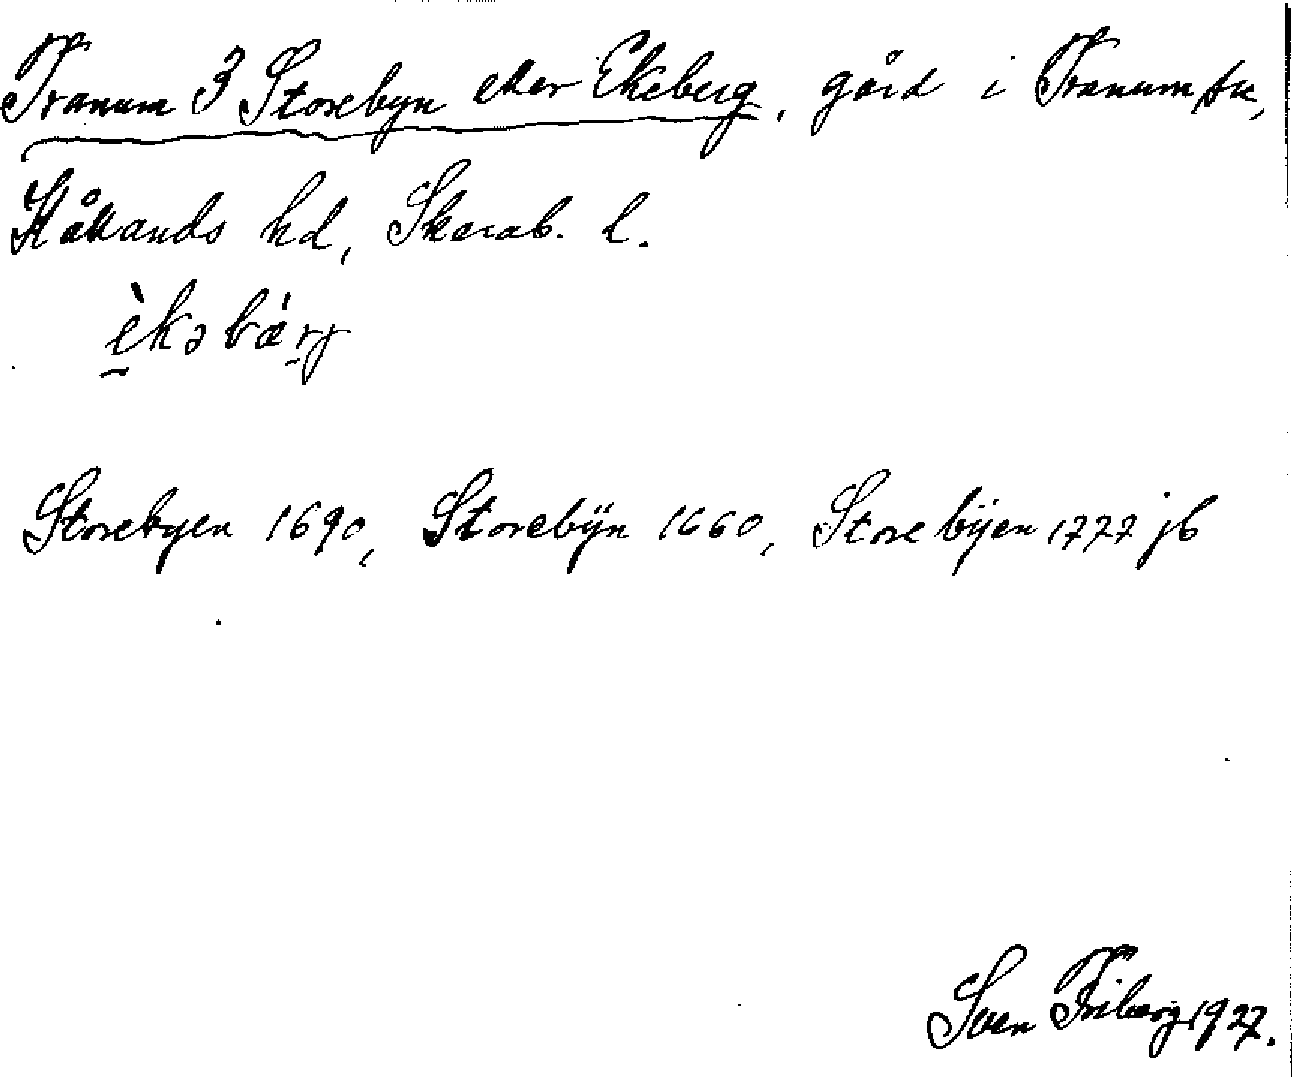 Tranum 3 Storebyn eller Ekeberg, gård i Tranum sn,
Kållands hd, Skarab. l.
èkəbá̈rj
Storebyen 1690, Storebÿn 1660, Storebÿen 1777 jb
Sven Friberg 1927.